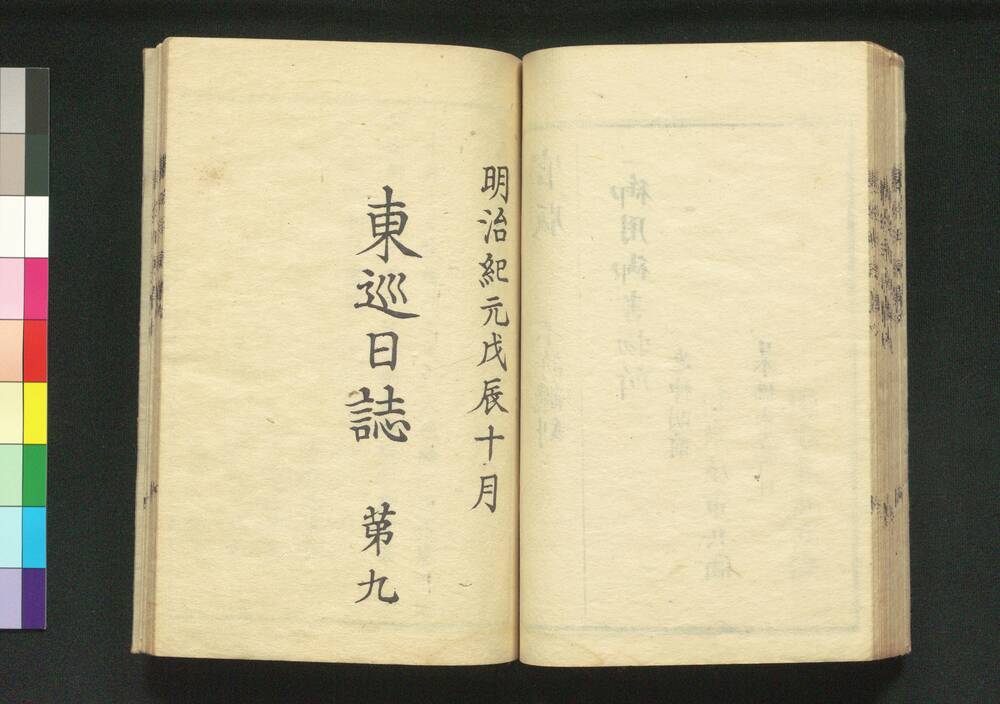 明治紀元戊辰十月
東巡日誌　第九